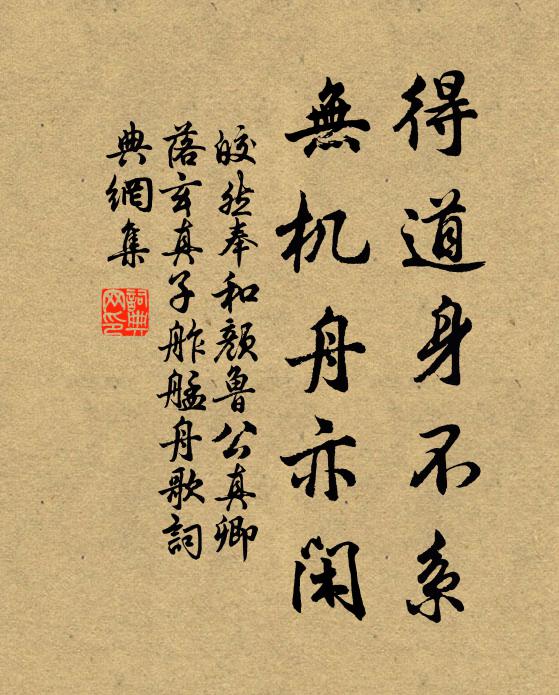 得道身不系
無机舟亦闲
皎然奉和颜鲁公真卿
落玄真子舴艋舟歌詞
典網集
詞典网印